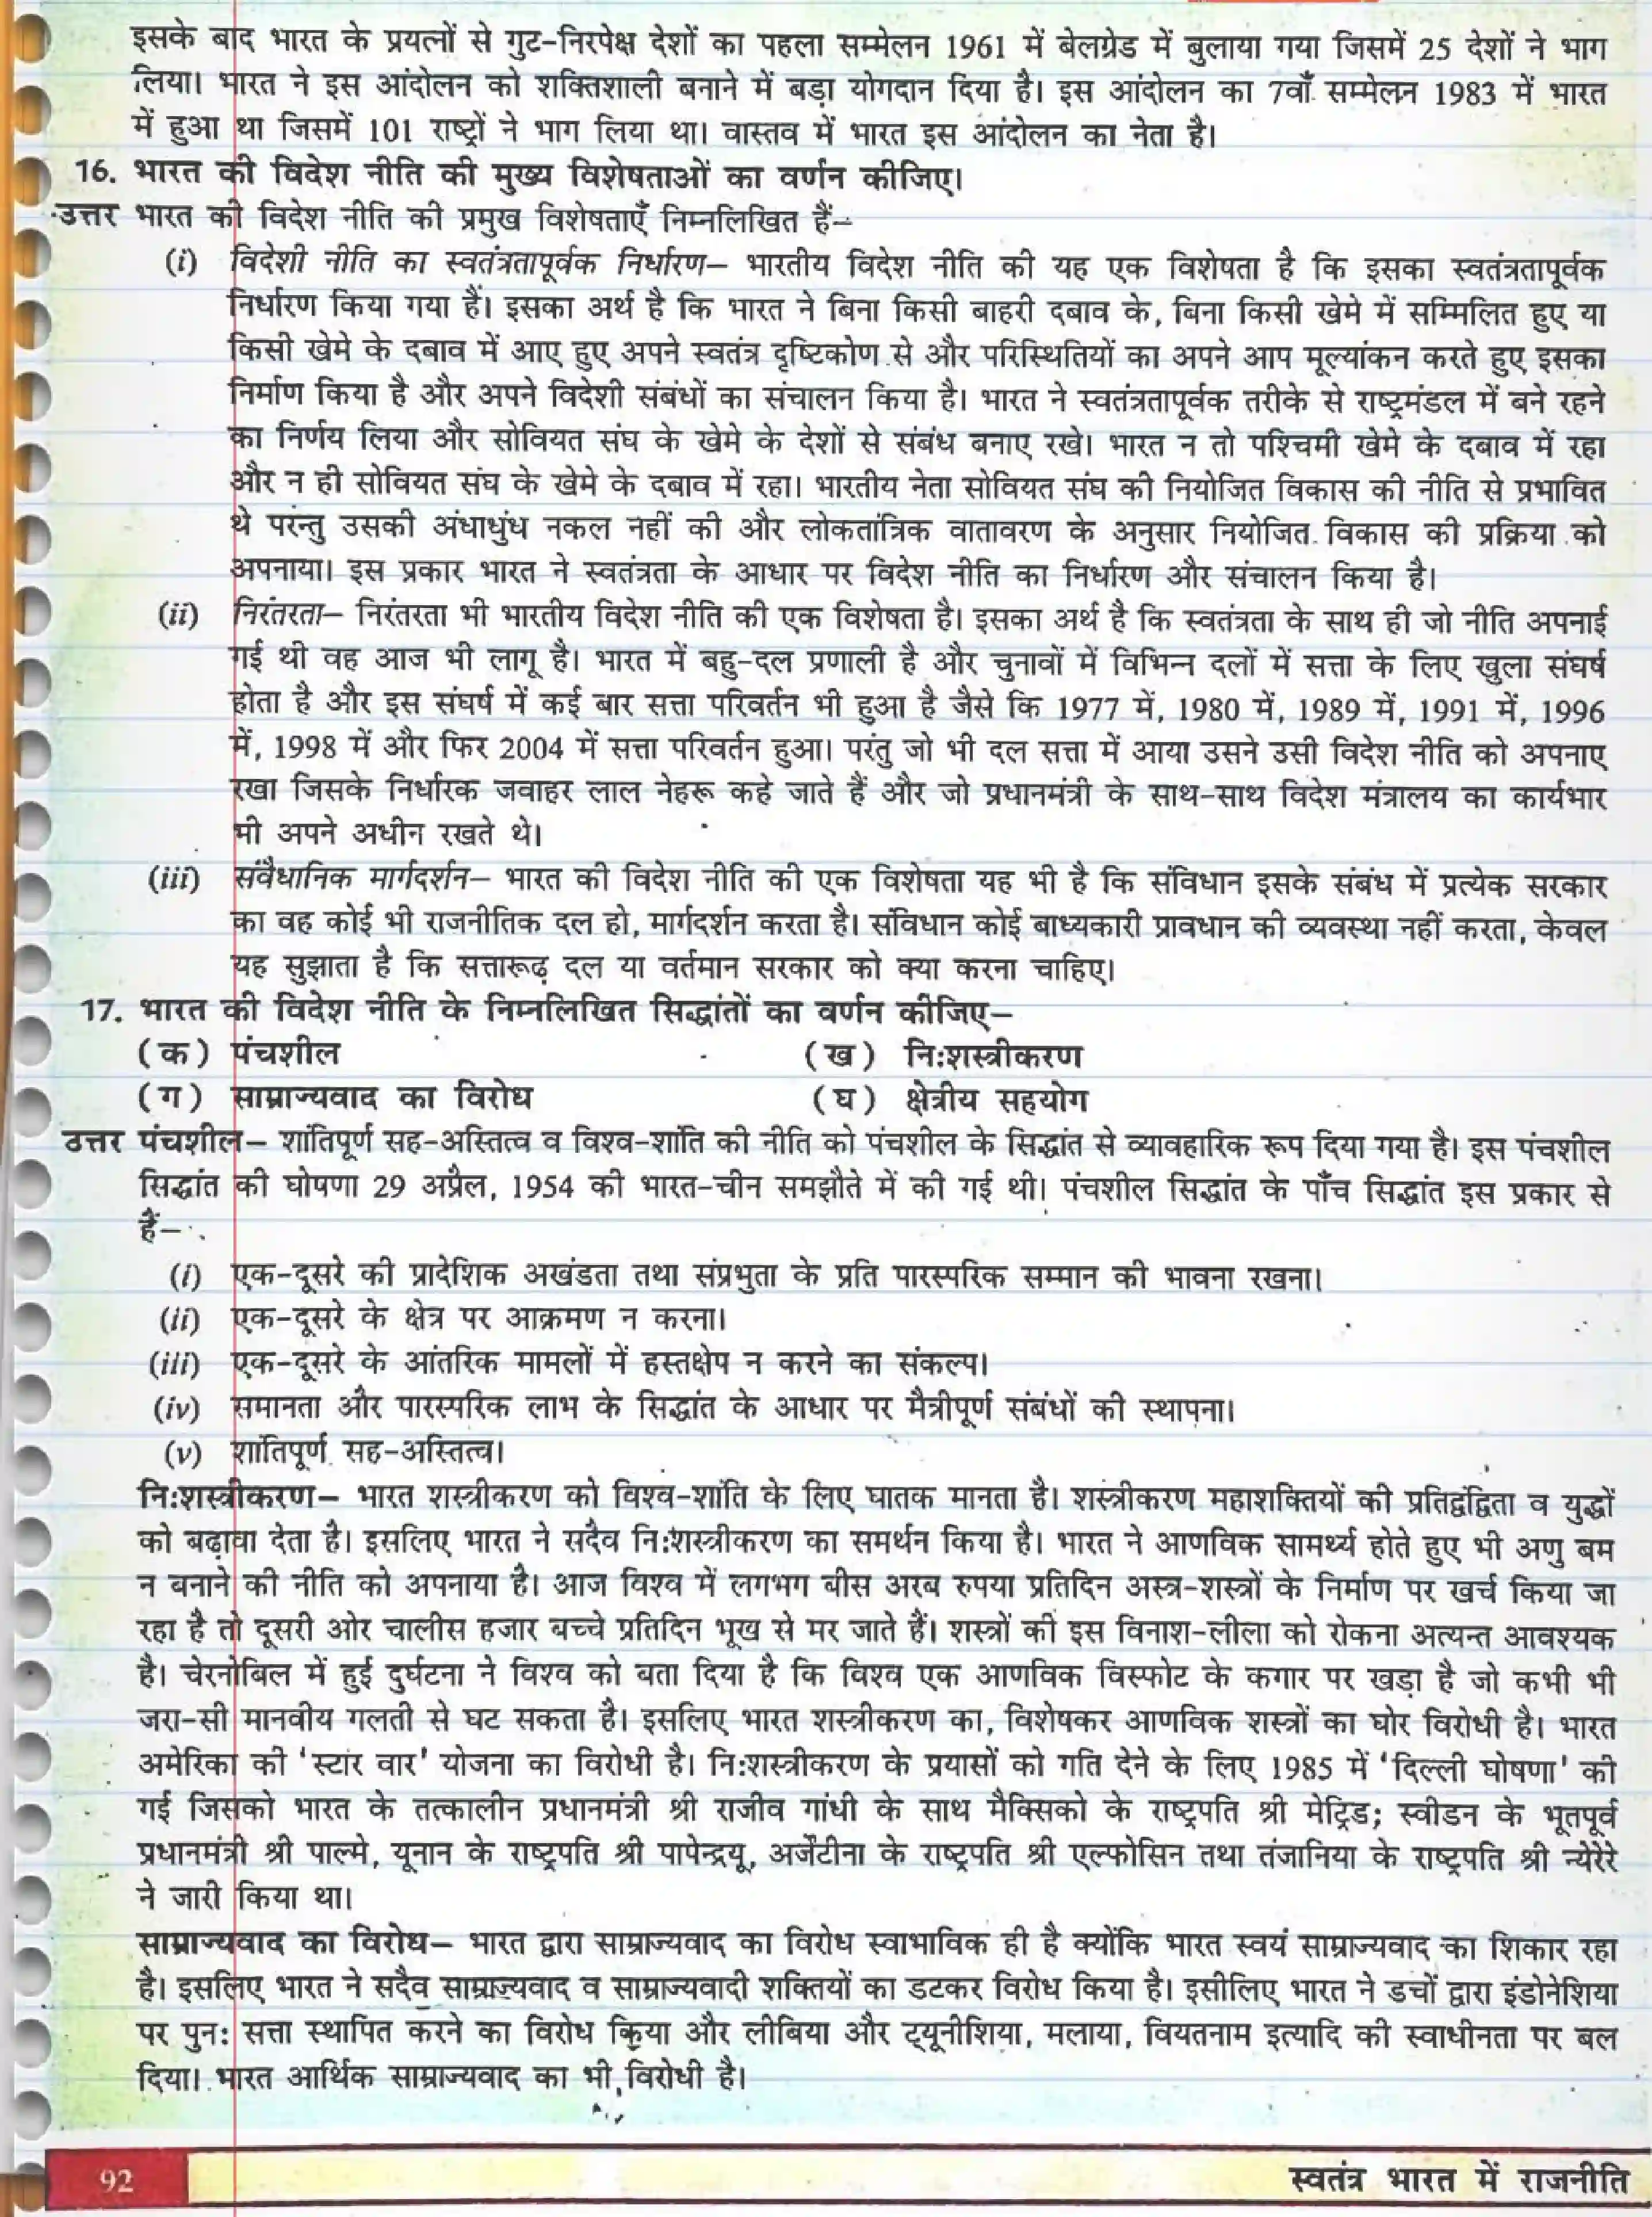 इसके बाद भारत के प्रयत्नों से गुट-निरपेक्ष देशों का पहला सम्मेलन 1961 में बेलग्रेड में बुलाया गया जिसमें 25 देशों ने भाग
लिया। भारत ने इस आंदोलन को शक्तिशाली बनाने में बड़ा योगदान दिया है। इस आंदोलन का 7वाँ सम्मेलन 1983 में भारत
में हुआ था जिसमें 101 राष्ट्रों ने भाग लिया था। वास्तव में भारत इस आंदोलन का नेता है।
16. भारत की विदेश नीति की मुख्य विशेषताओं का वर्णन कीजिए।
उत्तर भारत की विदेश नीति की प्रमुख विशेषताएँ निम्नलिखित हैं–
(i) विदेशी नीति का स्वतंत्रतापूर्वक निर्धारण– भारतीय विदेश नीति की यह एक विशेषता है कि इसका स्वतंत्रतापूर्वक
निर्धारण किया गया हैं। इसका अर्थ है कि भारत ने बिना किसी बाहरी दबाव के, बिना किसी खेमे में सम्मिलित हुए या
किसी खेमे के दबाव में आए हुए अपने स्वतंत्र दृष्टिकोण से और परिस्थितियों का अपने आप मूल्यांकन करते हुए इसका
निर्माण किया है और अपने विदेशी संबंधों का संचालन किया है। भारत ने स्वतंत्रतापूर्वक तरीके से राष्ट्रमंडल में बने रहने
का निर्णय लिया और सोवियत संघ के खेमे के देशों से संबंध बनाए रखे। भारत न तो पश्चिमी खेमे के दबाव में रहा
और न ही सोवियत संघ के खेमे के दबाव में रहा। भारतीय नेता सोवियत संघ की नियोजित विकास की नीति से प्रभावित
थे परन्तु उसकी अंधाधुंध नकल नहीं की और लोकतांत्रिक वातावरण के अनुसार नियोजित विकास की प्रक्रिया को
अपनाया। इस प्रकार भारत ने स्वतंत्रता के आधार पर विदेश नीति का निर्धारण और संचालन किया है।
(ii) निरंतरता– निरंतरता भी भारतीय विदेश नीति की एक विशेषता है। इसका अर्थ है कि स्वतंत्रता के साथ ही जो नीति अपनाई
गई थी वह आज भी लागू है। भारत में बहु-दल प्रणाली है और चुनावों में विभिन्न दलों में सत्ता के लिए खुला संघर्ष
होता है और इस संघर्ष में कई बार सत्ता परिवर्तन भी हुआ है जैसे कि 1977 में, 1980 में, 1989 में, 1991 में, 1996
में, 1998 में और फिर 2004 में सत्ता परिवर्तन हुआ। परंतु जो भी दल सत्ता में आया उसने उसी विदेश नीति को अपनाए
रखा जिसके निर्धारक जवाहर लाल नेहरू कहे जाते हैं और जो प्रधानमंत्री के साथ-साथ विदेश मंत्रालय का कार्यभार
भी अपने अधीन रखते थे।
(iii) संवैधानिक मार्गदर्शन– भारत की विदेश नीति की एक विशेषता यह भी है कि संविधान इसके संबंध में प्रत्येक सरकार
का वह कोई भी राजनीतिक दल हो, मार्गदर्शन करता है। संविधान कोई बाध्यकारी प्रावधान की व्यवस्था नहीं करता, केवल
यह सुझाता है कि सत्तारूढ़ दल या वर्तमान सरकार को क्या करना चाहिए।
17. भारत की विदेश नीति के निम्नलिखित सिद्धांतों का वर्णन कीजिए–
(क) पंचशील (ख) निःशस्त्रीकरण
(ग) साम्राज्यवाद का विरोध (घ) क्षेत्रीय सहयोग
उत्तर पंचशील– शांतिपूर्ण सह-अस्तित्व व विश्व-शांति की नीति को पंचशील के सिद्धांत से व्यावहारिक रूप दिया गया है। इस पंचशील
सिद्धांत की घोषणा 29 अप्रैल, 1954 की भारत-चीन समझौते में की गई थी। पंचशील सिद्धांत के पाँच सिद्धांत इस प्रकार से
हैं–
(i) एक-दूसरे की प्रादेशिक अखंडता तथा संप्रभुता के प्रति पारस्परिक सम्मान की भावना रखना।
(ii) एक-दूसरे के क्षेत्र पर आक्रमण न करना।
(iii) एक-दूसरे के आंतरिक मामलों में हस्तक्षेप न करने का संकल्प।
(iv) समानता और पारस्परिक लाभ के सिद्धांत के आधार पर मैत्रीपूर्ण संबंधों की स्थापना।
(v) शांतिपूर्ण सह-अस्तित्व।
निःशस्त्रीकरण– भारत शस्त्रीकरण को विश्व-शांति के लिए घातक मानता है। शस्त्रीकरण महाशक्तियों की प्रतिद्वंद्विता व युद्धों
को बढ़ावा देता है। इसलिए भारत ने सदैव निःशस्त्रीकरण का समर्थन किया है। भारत ने आणविक सामर्थ्य होते हुए भी अणु बम
न बनाने की नीति को अपनाया है। आज विश्व में लगभग बीस अरब रुपया प्रतिदिन अस्त्र-शस्त्रों के निर्माण पर खर्च किया जा
रहा है तो दूसरी ओर चालीस हजार बच्चे प्रतिदिन भूख से मर जाते हैं। शस्त्रों की इस विनाश-लीला को रोकना अत्यन्त आवश्यक
है। चेरनोबिल में हुई दुर्घटना ने विश्व को बता दिया है कि विश्व एक आणविक विस्फोट के कगार पर खड़ा है जो कभी भी
जरा-सी मानवीय गलती से घट सकता है। इसलिए भारत शस्त्रीकरण का, विशेषकर आणविक शस्त्रों का घोर विरोधी है। भारत
अमेरिका की 'स्टार वार' योजना का विरोधी है। निःशस्त्रीकरण के प्रयासों को गति देने के लिए 1985 में 'दिल्ली घोषणा' की
गई जिसको भारत के तत्कालीन प्रधानमंत्री श्री राजीव गांधी के साथ मैक्सिको के राष्ट्रपति श्री मेट्रिड; स्वीडन के भूतपूर्व
प्रधानमंत्री श्री पाल्मे, यूनान के राष्ट्रपति श्री पापेन्द्रयू, अर्जेंटीना के राष्ट्रपति श्री एल्फोसिन तथा तंजानिया के राष्ट्रपति श्री न्येरेरे
ने जारी किया था।
साम्राज्यवाद का विरोध– भारत द्वारा साम्राज्यवाद का विरोध स्वाभाविक ही है क्योंकि भारत स्वयं साम्राज्यवाद का शिकार रहा
है। इसलिए भारत ने सदैव साम्राज्यवाद व साम्राज्यवादी शक्तियों का डटकर विरोध किया है। इसीलिए भारत ने डचों द्वारा इंडोनेशिया
पर पुनः सत्ता स्थापित करने का विरोध किया और लीबिया और ट्यूनीशिया, मलाया, वियतनाम इत्यादि की स्वाधीनता पर बल
दिया। भारत आर्थिक साम्राज्यवाद का भी विरोधी है।
92 स्वतंत्र भारत में राजनीति